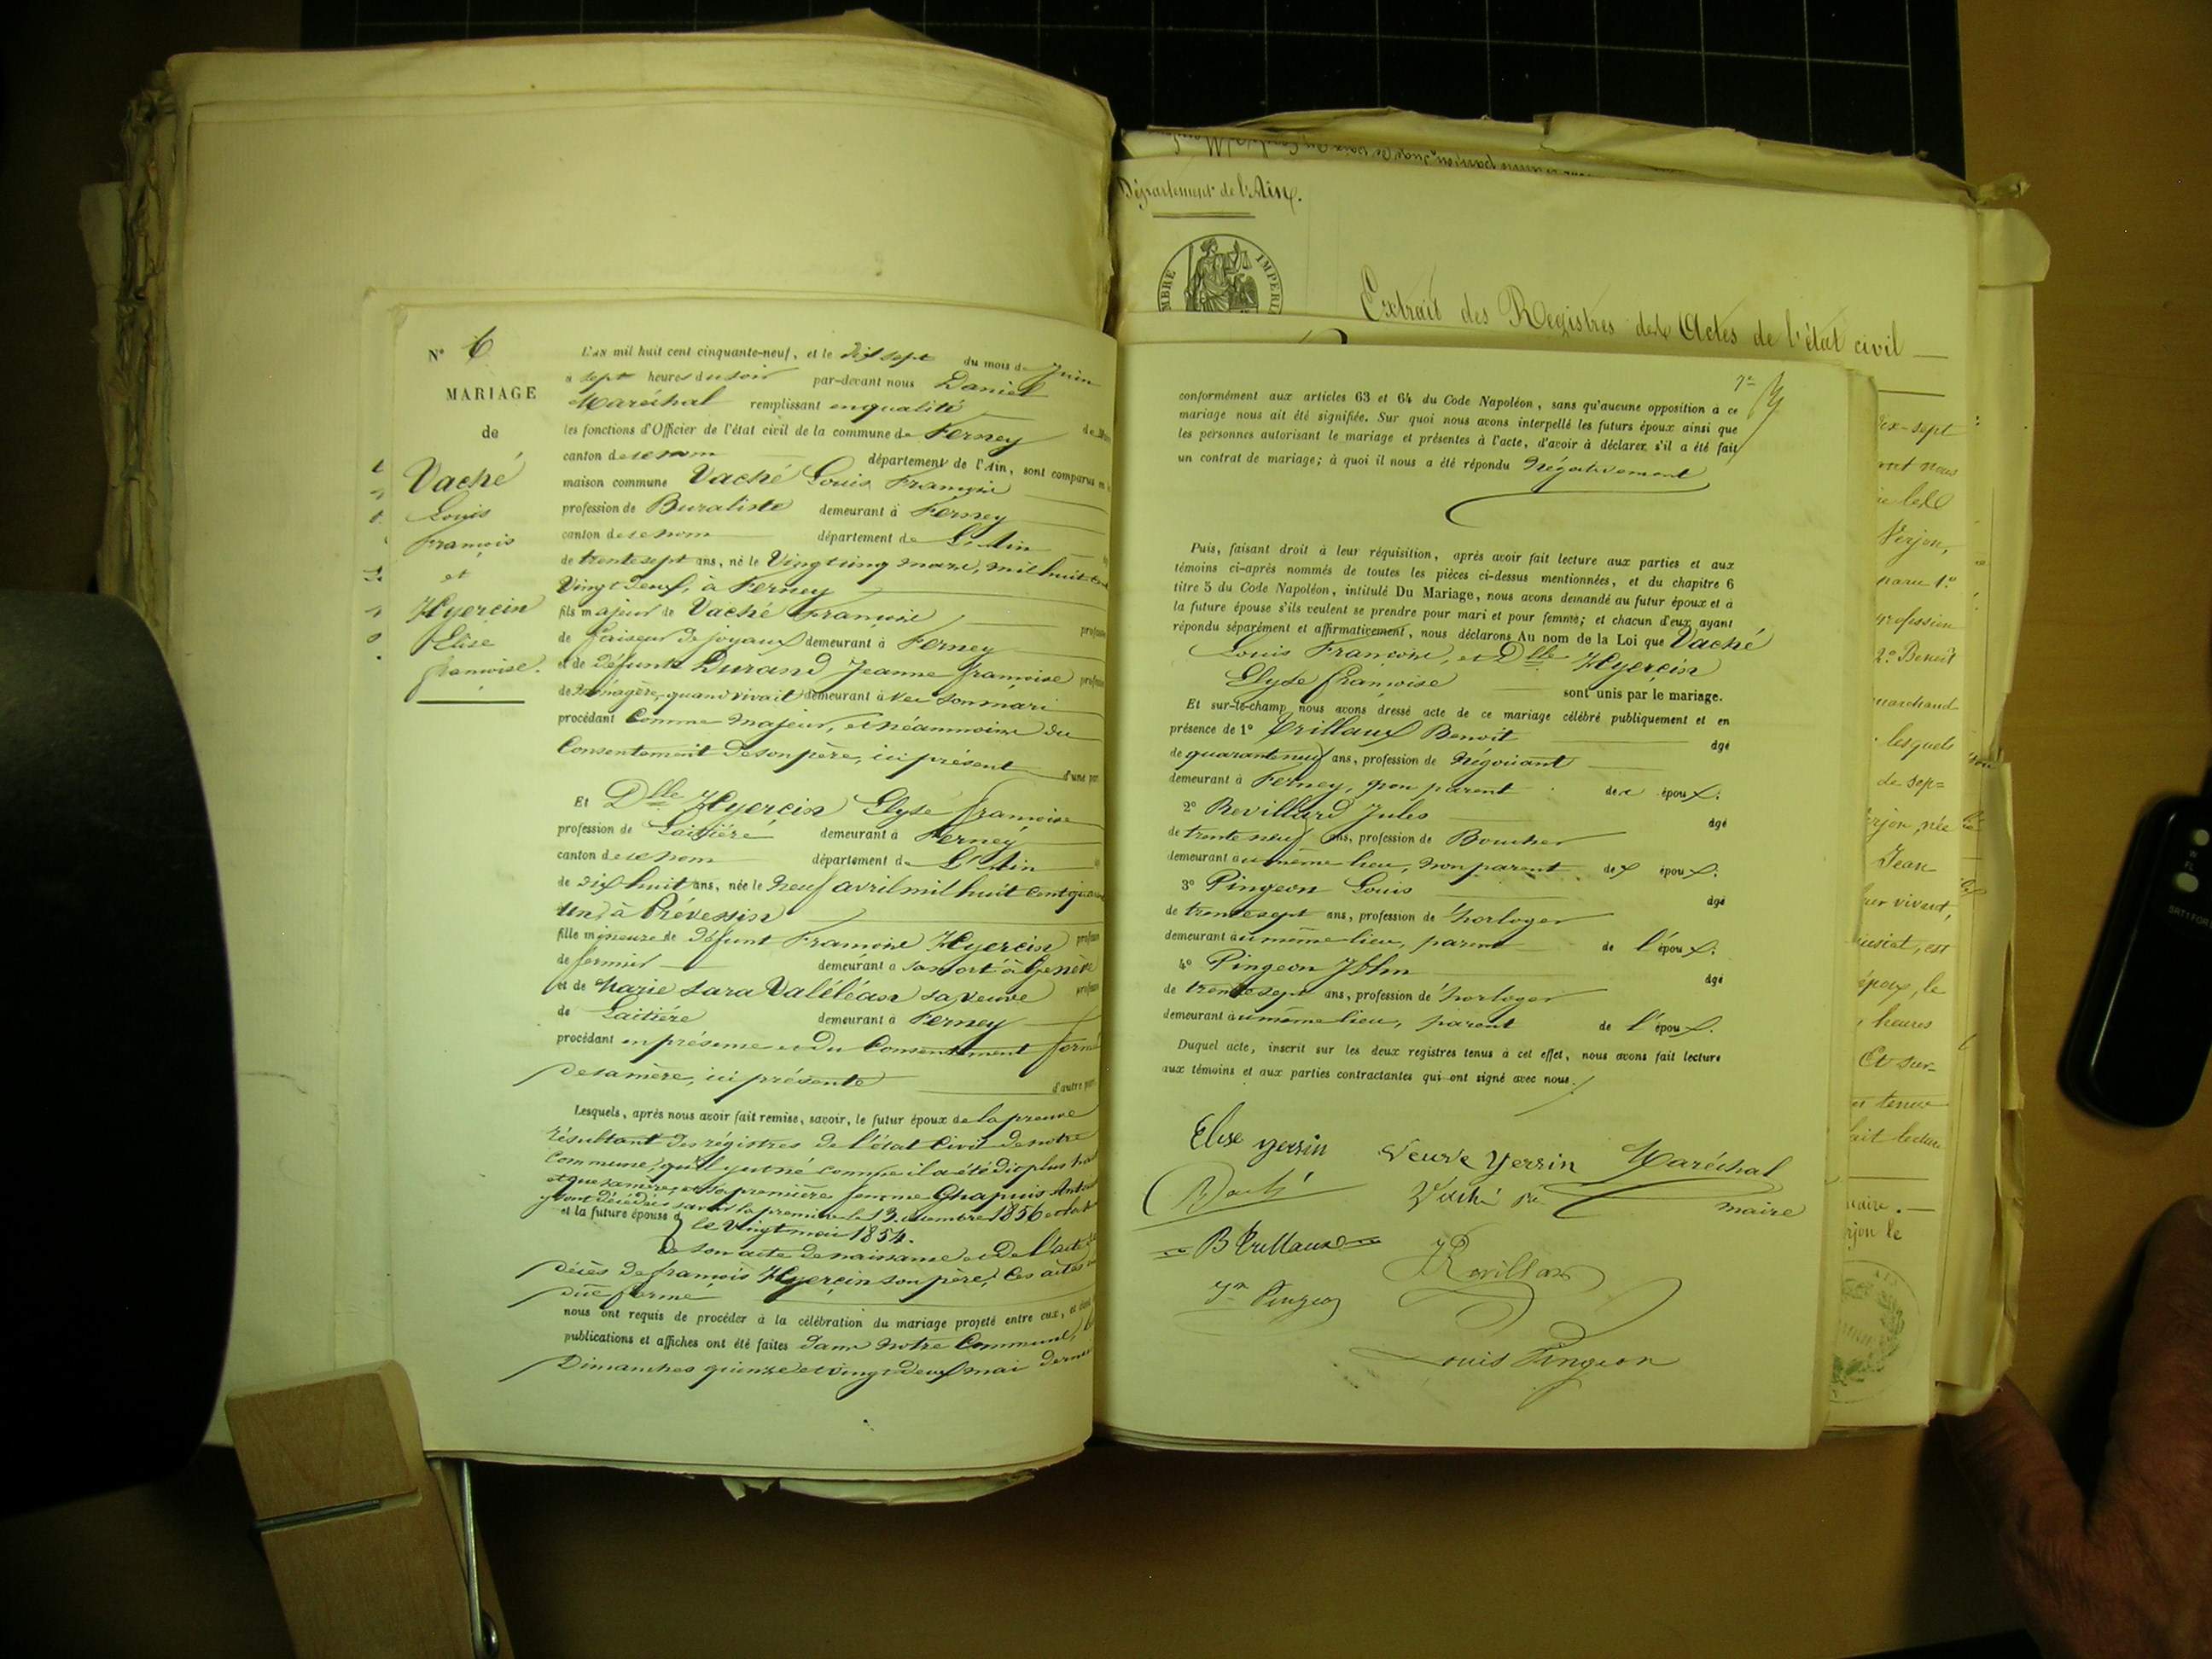 N° 6
MARIAGE
de
Vaché
Louis
François
et
Hyercin
Elise
françoise.
L'an mil huit cent cinquante-neuf, et le Dix sept du mois de Juin
a sept heures du soir par-devant nous Daniel
Maréchal remplissant en qualité
les fonctions d'Officier de l'état civil de la commune de Ferney
canton de ce nom département de l'Ain, sont comparus en
maison commune Vaché Louis François
profession de Buraliste demeurant à Ferney
canton de ce nom département de L'Ain
de trente sept ans, né le Vingt cinq mars, mil huit cent
Vingt deux, à Ferney
fils majeur de Vaché François
de faiseur de joyaux demeurant à Ferney
et de défunte Durand Jeanne françoise
de ménagère, quand vivait demeurant à vec son mari
procédant Comme majeur, et néammoins du
Consentement de son père, ici présent d'une part
Et Dlle Hyercin Elyse françoise
profession de Laitière demeurant à Ferney
canton de ce nom département de L'Ain
de dix huit ans, née le neuf avril mil huit cent
un, à Prévessin
fille mineure de défunt François Hyercin
de fermier demeurant a sa mort à Genève
et de Marie Sara Valéléan sa veuve
de Laitière demeurant à Ferney
procédant en présence et du Consentement formel
de sa mère, ici présente d'autre part
Lesquels, après nous avoir fait remise, savoir, le futur époux de la preuve
résultant des régistres de l'état Civil de notre
Commune, qu'il y est né comme il a été dit plus haut
et que sa mère, et sa première femme Chapuis
y sont décédées savoir la première le 13 décembre 1856
et la future épouse le Vingt mai 1854.
de son acte de naissance et de l'acte de
décès de françois Hyercin son père, Ces actes
due forme
nous ont requis de procéder à la célébration du mariage projeté entre eux, et dont
publications et affiches ont été faites dans notre Commune,
Dimanches quinze et vingt deux mai dernier
Département de l'Ain.
Extrait des Registres des Actes de l'état civil
conformément aux articles 63 et 64 du Code Napoléon, sans qu'aucune opposition à ce
mariage nous ait été signifiée. Sur quoi nous avons interpellé les futurs époux ainsi que
les personnes autorisant le mariage et présentes à l'acte, d'avoir à déclarer s'il a été fait
un contrat de mariage; à quoi il nous a été répondu Négativement
Puis, faisant droit à leur réquisition, après avoir fait lecture aux parties et aux
témoins ci-après nommés de toutes les pièces ci-dessus mentionnées, et du chapitre 6
titre 5 du Code Napoléon, intitulé Du Mariage, nous avons demandé au futur époux et à
la future épouse s'ils veulent se prendre pour mari et pour femme; et chacun d'eux ayant
répondu séparément et affirmativement, nous déclarons Au nom de la Loi que Vaché
Louis François, et Dlle Hyercin
Elyse françoise sont unis par le mariage.
Et sur-le-champ nous avons dressé acte de ce mariage célébré publiquement et en
présence de 1° Crillaux Benoit âgé
de quarante neuf ans, profession de Négociant
demeurant à Ferney, non parent des époux.
2° Revillard Jules âgé
de trente neuf ans, profession de Boucher
demeurant au même lieu, non parent des époux.
3° Pingeon Louis âgé
de trente sept ans, profession de horloger
demeurant au même lieu, parent de l'époux.
4° Pingeon John âgé
de trente sept ans, profession de horloger
demeurant au même lieu, parent de l'époux.
Duquel acte, inscrit sur les deux registres tenus à cet effet, nous avons fait lecture
aux témoins et aux parties contractantes qui ont signé avec nous.
Elise yersin Veuve Yersin Maréchal
Vaché maire
Louis Pingeon